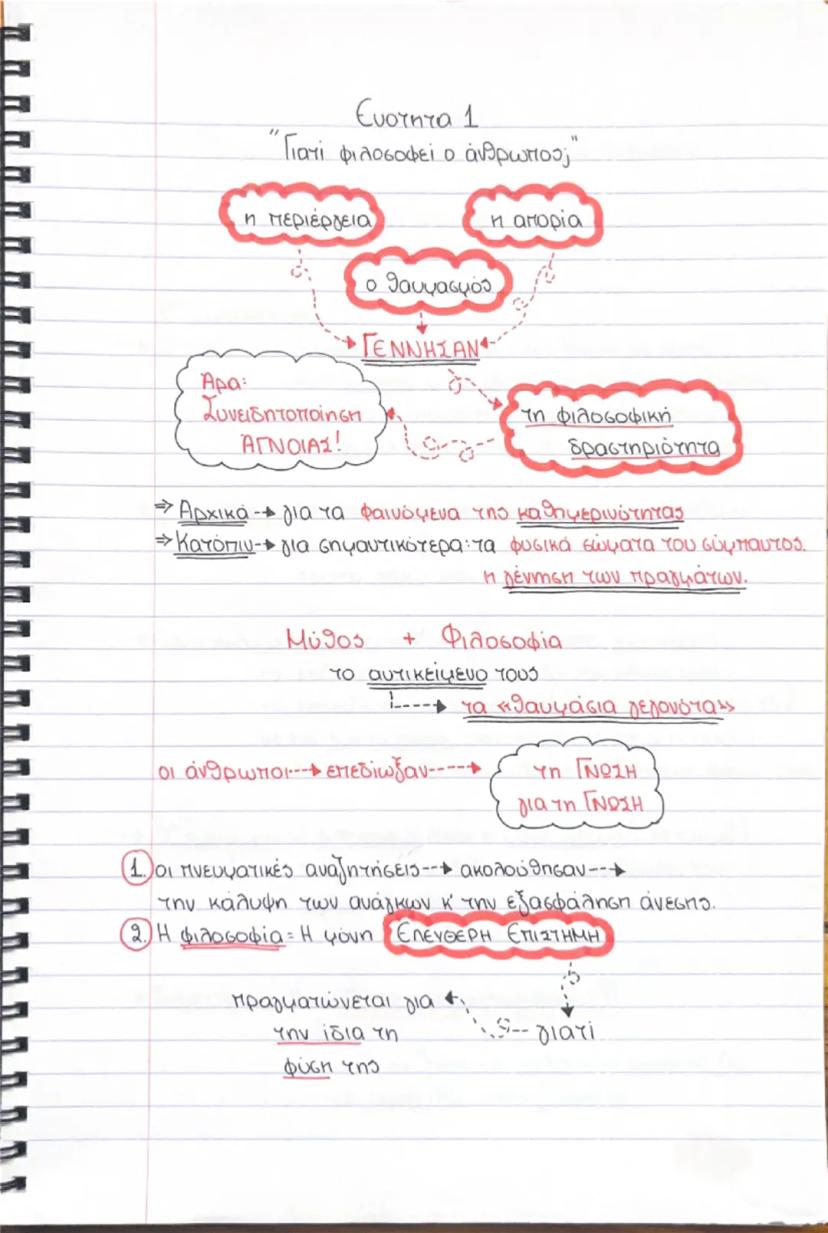 Ενότητα 1
"Γιατί φιλοσοφεί ο άνθρωπος;"
η περιέργεια
η απορία
ο θαυμασμός
ΓΕΝΝΗΣΑΝ
Άρα:
Συνειδητοποίηση
ΑΓΝΟΙΑΣ!
τη φιλοσοφική
δραστηριότητα
⇒ Αρχικά --> για τα φαινόμενα της καθημερινότητας
⇒ Κατόπιν --> για σημαντικότερα: τα φυσικά σώματα του σύμπαντος.
η γέννηση των πραγμάτων.
Μύθος + Φιλοσοφία
το αντικείμενο τους
---> τα «θαυμάσια γεγονότα»
οι άνθρωποι ---> επεδίωξαν ---->
τη ΓΝΩΣΗ
για τη ΓΝΩΣΗ
1. οι πνευματικές αναζητήσεις --> ακολούθησαν -->
την κάλυψη των αναγκών κ' την εξασφάληση άνεσης.
2. Η φιλοσοφία = Η μόνη ΕΛΕΥΘΕΡΗ ΕΠΙΣΤΗΜΗ
πραγματώνεται για
γιατί
την ίδια τη
φύση της